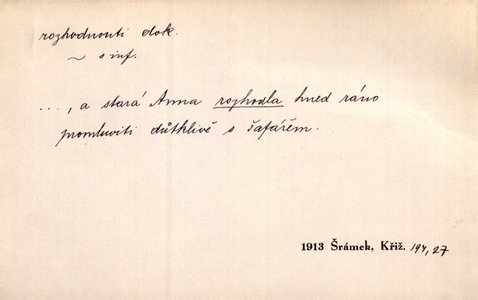 rozhodnouti dok.
~ s inf.
..., a stará Anna rozhodla hned ráno
promluviti důtklivě s šafářem.
1913 Šrámek, Křiž. 194, 27